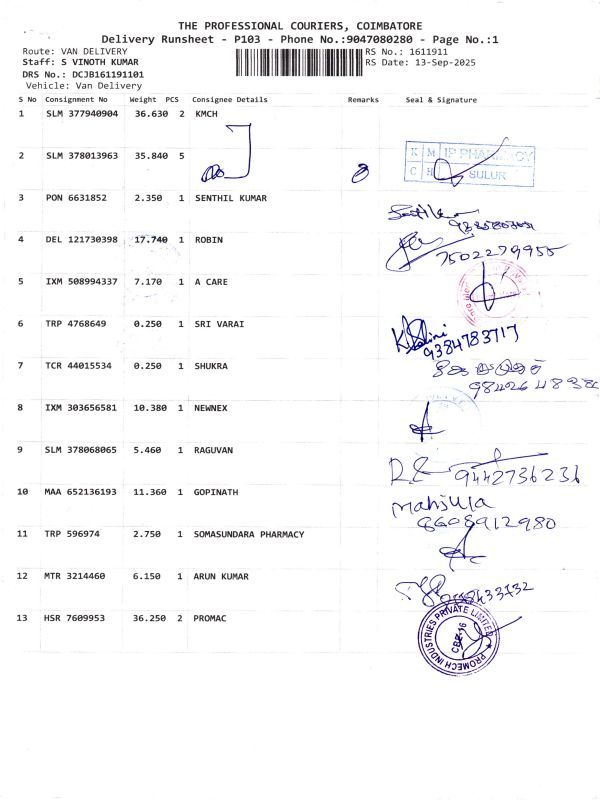 THE PROFESSIONAL COURIERS, COIMBATORE
Delivery Runsheet - P103 - Phone No.:9047080280 - Page No.:1
Route: VAN DELIVERY RS No.: 1611911
Staff: S VINOTH KUMAR RS Date: 13-Sep-2025
DRS No.: DCJB161191101
Vehicle: Van Delivery
S No Consignment No Weight PCS Consignee Details Remarks Seal & Signature
1 SLM 377940904 36.630 2 KMCH
2 SLM 378013963 35.840 5
K M IP PHARMACY
C H SULUR
3 PON 6631852 2.350 1 SENTHIL KUMAR
4 DEL 121730398 17.740 1 ROBIN
7502279955
5 IXM 508994337 7.170 1 A CARE
6 TRP 4768649 0.250 1 SRI VARAI
9384783717
7 TCR 44015534 0.250 1 SHUKRA
8 IXM 303656581 10.380 1 NEWNEX
9 SLM 378068065 5.460 1 RAGUVAN
9442736236
10 MAA 652136193 11.360 1 GOPINATH
Manjula
8608912980
11 TRP 596974 2.750 1 SOMASUNDARA PHARMACY
12 MTR 3214460 6.150 1 ARUN KUMAR
13 HSR 7609953 36.250 2 PROMAC
PROMECH INDUSTRIES PRIVATE LIMITED
CBE-16